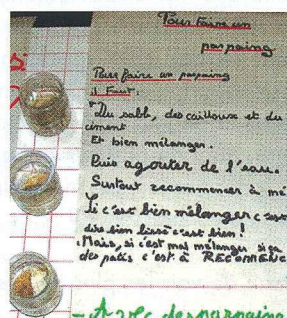 Pour Faire un
parpaing
Pour faire un parpaing
il Faut:
Du sable, des cailloux et du
ciment
Et bien mélanger.
Puis agouter de l'eau.
Surtout recommencer à mé
Si c'est bien mélanger c'est
bien lisse c'est bien!
Mais, si c'est mal mélanger si ça
des patés c'est à RECOMENC
- Avec des parpaing